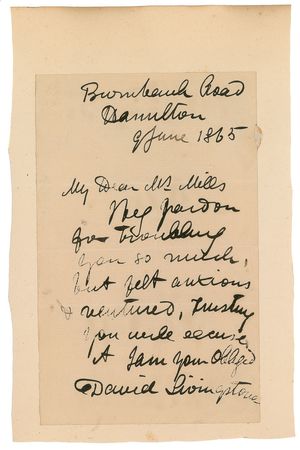 Burnbank Road
Hamilton
9 June 1865
My Dear Mr Mills
I beg pardon
for troubling
you so much,
but felt anxious
& ventured, trusting
you will excuse
it I am your obliged
David Livingstone